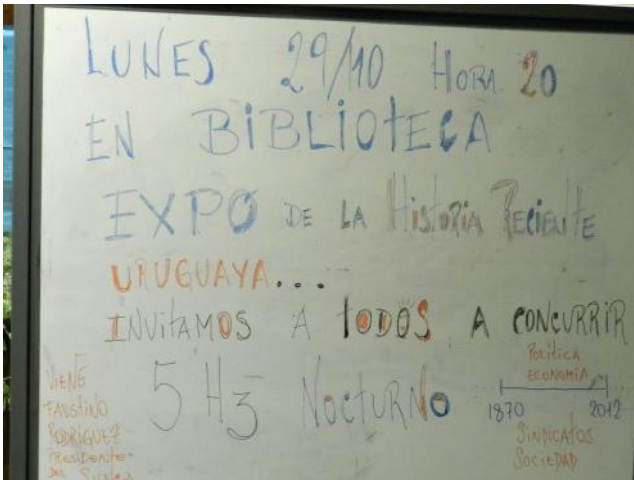 LUNES 29/10 HORA 20
EN BIBLIOTECA
EXPO DE LA HISTORIA RECIENTE
URUGUAYA...
INVITAMOS A TODOS A CONCURRIR
5 H3 NOCTURNO
VIENE
FAUSTINO
RODRIGUEZ
PRESIDENTE
DEL
POLÍTICA
ECONOMÍA
1870 2012
SINDICATOS
SOCIEDAD